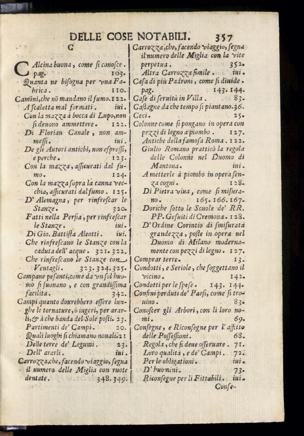 DELLE COSE NOTABILI. 357
C
CAlcina buona, come si conosce.
pag. 109.
Quanta ne bisogna per una Fabrica. 110.
Camini, che nò mandano il fumo. 122.
A scaletta mal formati. ivi.
Con la mazza a bocca di Lupo, non
si devono ammettere. 122.
Di Florian Canale, non ammessi. ivi.
De gli Autori antichi, non espressi,
e perche. 123.
Con la mazza, assicurati dal fumo. 124.
Con la mazza sopra la canna vecchia, assicurati dal fumo. 125.
D' Alemagna, per rinfrescar le
Stanze. 320.
Fatti nella Persia, per rinfrescar
le Stanze. ivi.
Di Gio. Battista Aleotti. ivi.
Che rinfrescano le Stanze con la
caduta dell' acque. 321. 322.
Che rinfrescano le Stanze con
Ventagli. 323. 324. 325.
Campane pesanti, come da un sol huomo si suonano, e con grandissima
facilita. 342.
Campi quanto dovrebbero essere lunghi
Partimenti de' Campi. 20.
Quali luoghi si chiamano novali. 21
Delle terre de' Legumi. 23.
Dell' ararli. ivi.
Carrozza, che, facendo viaggio, segna
il numero delle Miglia con ruote
dentate. 348. 349.
Carrozza, che, facendo viaggio, segna
il numero delle Miglia con la vite
perpetua. 352.
Altra Carrozza simile. ivi.
Casa di più Padroni, come si divide.
pag. 143. 144.
Case di servitù in Villa. 83.
Castagne da che tempo si piantano. 36.
Ceci. 25.
Colonne come si pongano in opera con
pezzi di legno a piombo. 127.
Antiche della famosa Roma. 122.
Giulio Romano praticò la regola
delle Colonne nel Duomo di
Mantova. ivi.
A metterle à piombo in opera senza cogni. 128.
Di Pietra viva, come si misurano. 165. 166. 167.
Doriche sotto le Scuole de' RR.
PP. Giesuiti di Cremona. 128.
D' Ordine Corintio di smisurata
grandezza, poste in opera nel
Duomo di Milano modernamente con pezzi di legno. 127.
Comprar terre. 13.
Condotti, e Seriole, che soggettano il
vicino. 142.
Condotti per le spese. 143. 144.
Confini perduti de' Paesi, come si trovino. 83.
Conoscer gli Arbori, con li loro nomi. 69.
Consegne, e Riconsegne per l' affitto
delle Possessioni. 68.
Regola, che si deve osservare. 71.
Loro qualità, e de' Campi. 72.
Per le obligationi. ivi.
D' huomini. 73.
Riconsegne per li Fittabili. ivi.
Conse-